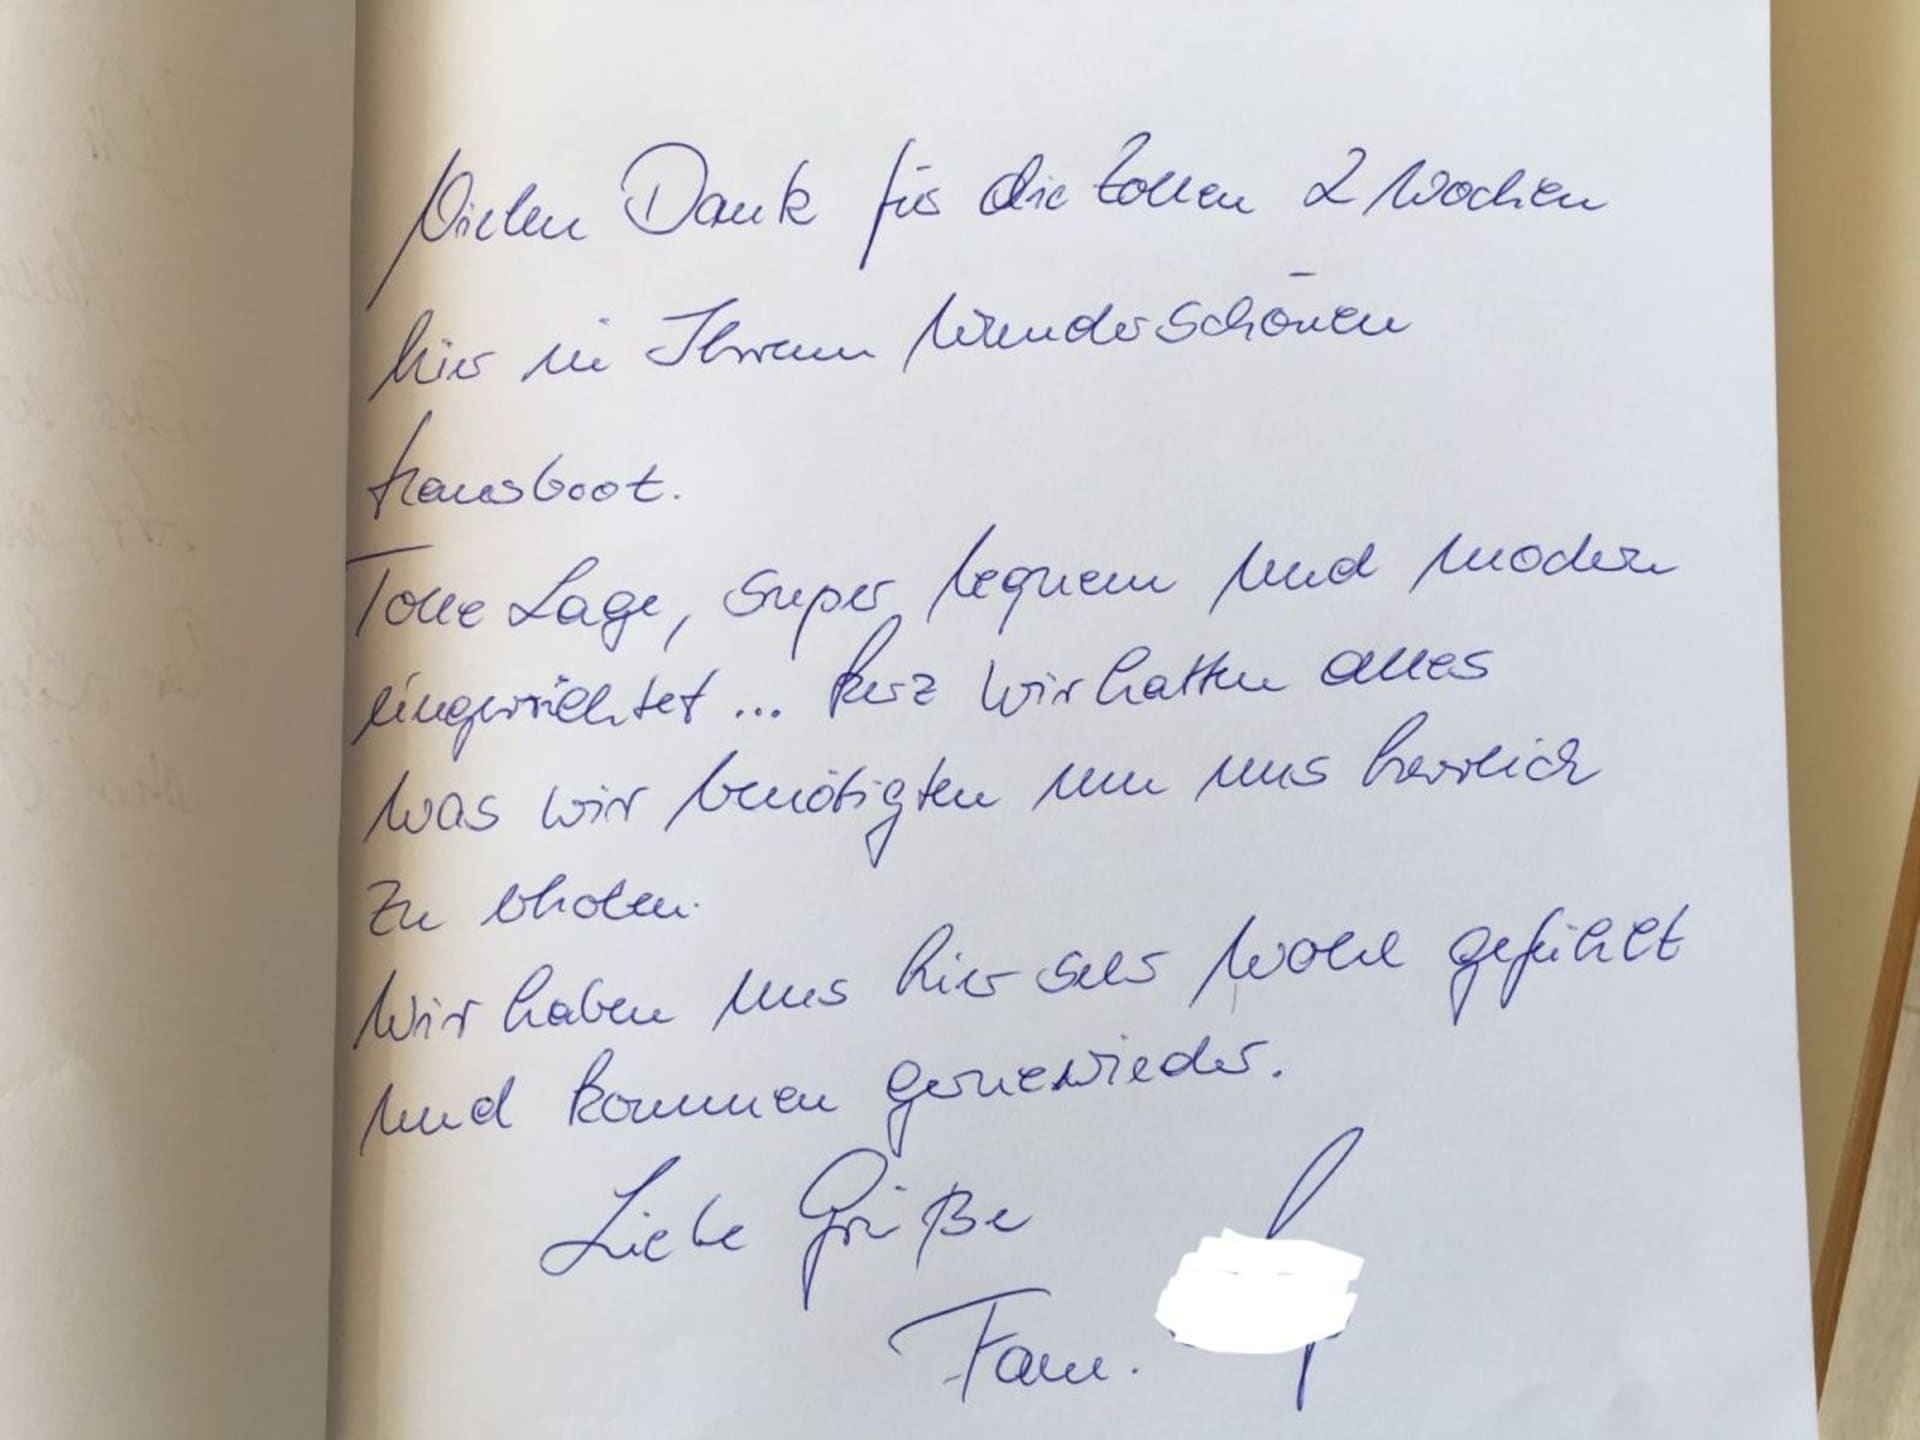 Vielen Dank für die tollen 2 Wochen
hier in Ihrem wunderschönen
Hausboot.
Tolle Lage, super bequem und modern
eingerichtet... kurz wir hatten alles
was wir benötigten um uns herrlich
zu erholen.
Wir haben uns hier sehr wohl gefühlt
und kommen gerne wieder.
Liebe Grüße
Fam.